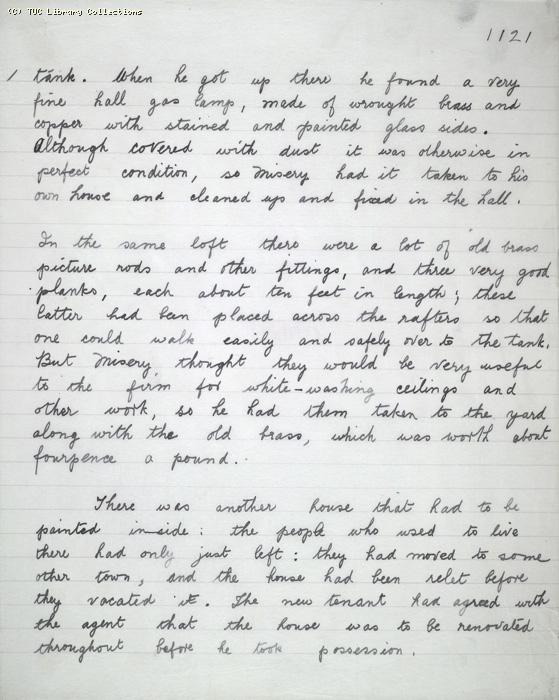 (C) TUC Library Collections
1121
/ tank. When he got up there he found a very
fine hall gas lamp, made of wrought brass and
copper with stained and painted glass sides.
Although covered with dust it was otherwise in
perfect condition, so Misery had it taken to his
own house and cleaned up and fixed in the hall.
In the same loft there were a lot of old brass
picture rods and other fittings, and three very good
planks, each about ten feet in length; these
latter had been placed across the rafters so that
one could walk easily and safely over to the tank.
But Misery thought they would be very useful
to the firm for white-washing ceilings and
other work, so he had them taken to the yard
along with the old brass, which was worth about
fourpence a pound.
There was another house that had to be
painted inside: the people who used to live
there had only just left: they had moved to some
other town, and the house had been relet before
they vacated it. The new tenant had agreed with
the agent that the house was to be renovated
throughout before he took possession.